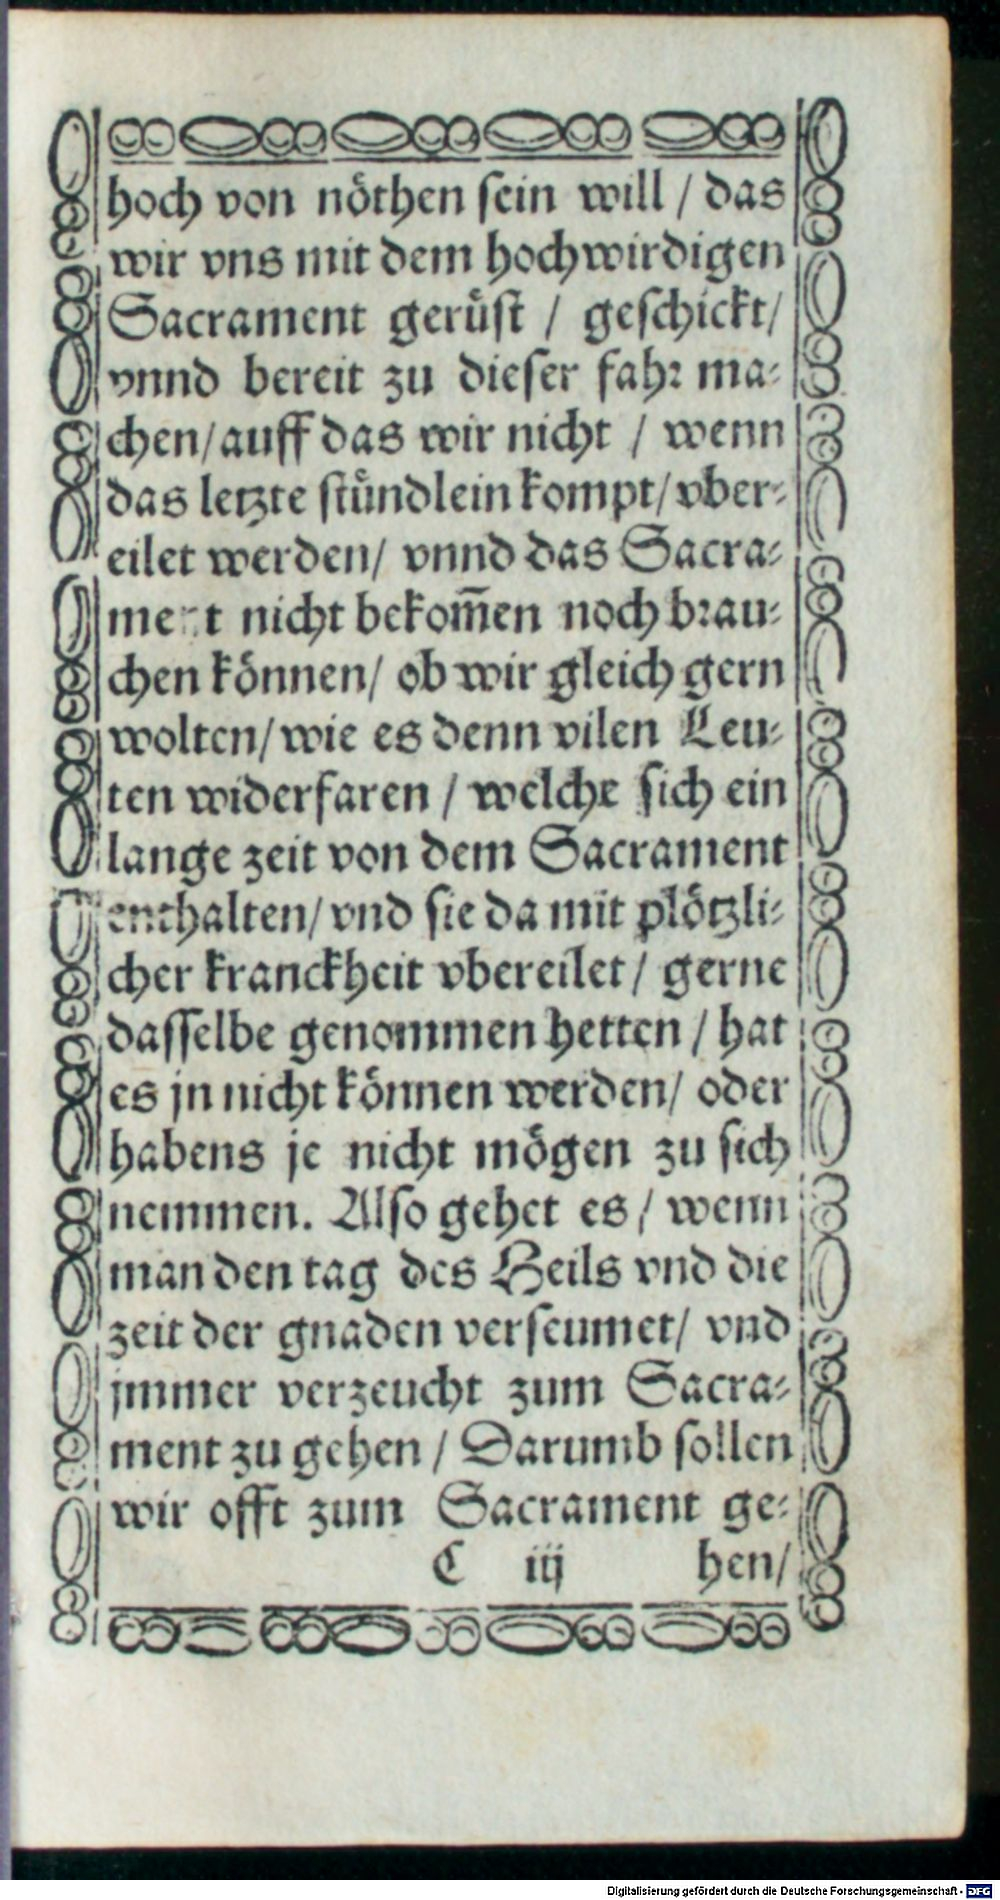 hoch von nöthen sein will / das
wir vns mit dem hochwirdigen
Sacrament gerüst / geschickt/
vnnd bereit zu dieser fahr ma-
chen/ auff das wir nicht / wenn
das letzte stündlein kompt/ vber-
eilet werden/ vnnd das Sacra-
ment nicht bekom̃en noch brau-
chen können/ ob wir gleich gern
wolten/ wie es denn vilen Leu-
ten widerfaren / welche sich ein
lange zeit von dem Sacrament
enthalten/ vnd sie da mit plötzli-
cher kranckheit vbereilet/ gerne
dasselbe genommen hetten / hat
es jn nicht können werden/ oder
habens je nicht mögen zu sich
nemmen. Also gehet es/ wenn
man den tag des Heils vnd die
zeit der gnaden verseumet/ vnd
jmmer verzeucht zum Sacra-
ment zu gehen / Darumb sollen
wir offt zum Sacrament ge-
C iij hen/
Digitalisierung gefördert durch die Deutsche Forschungsgemeinschaft - DFG